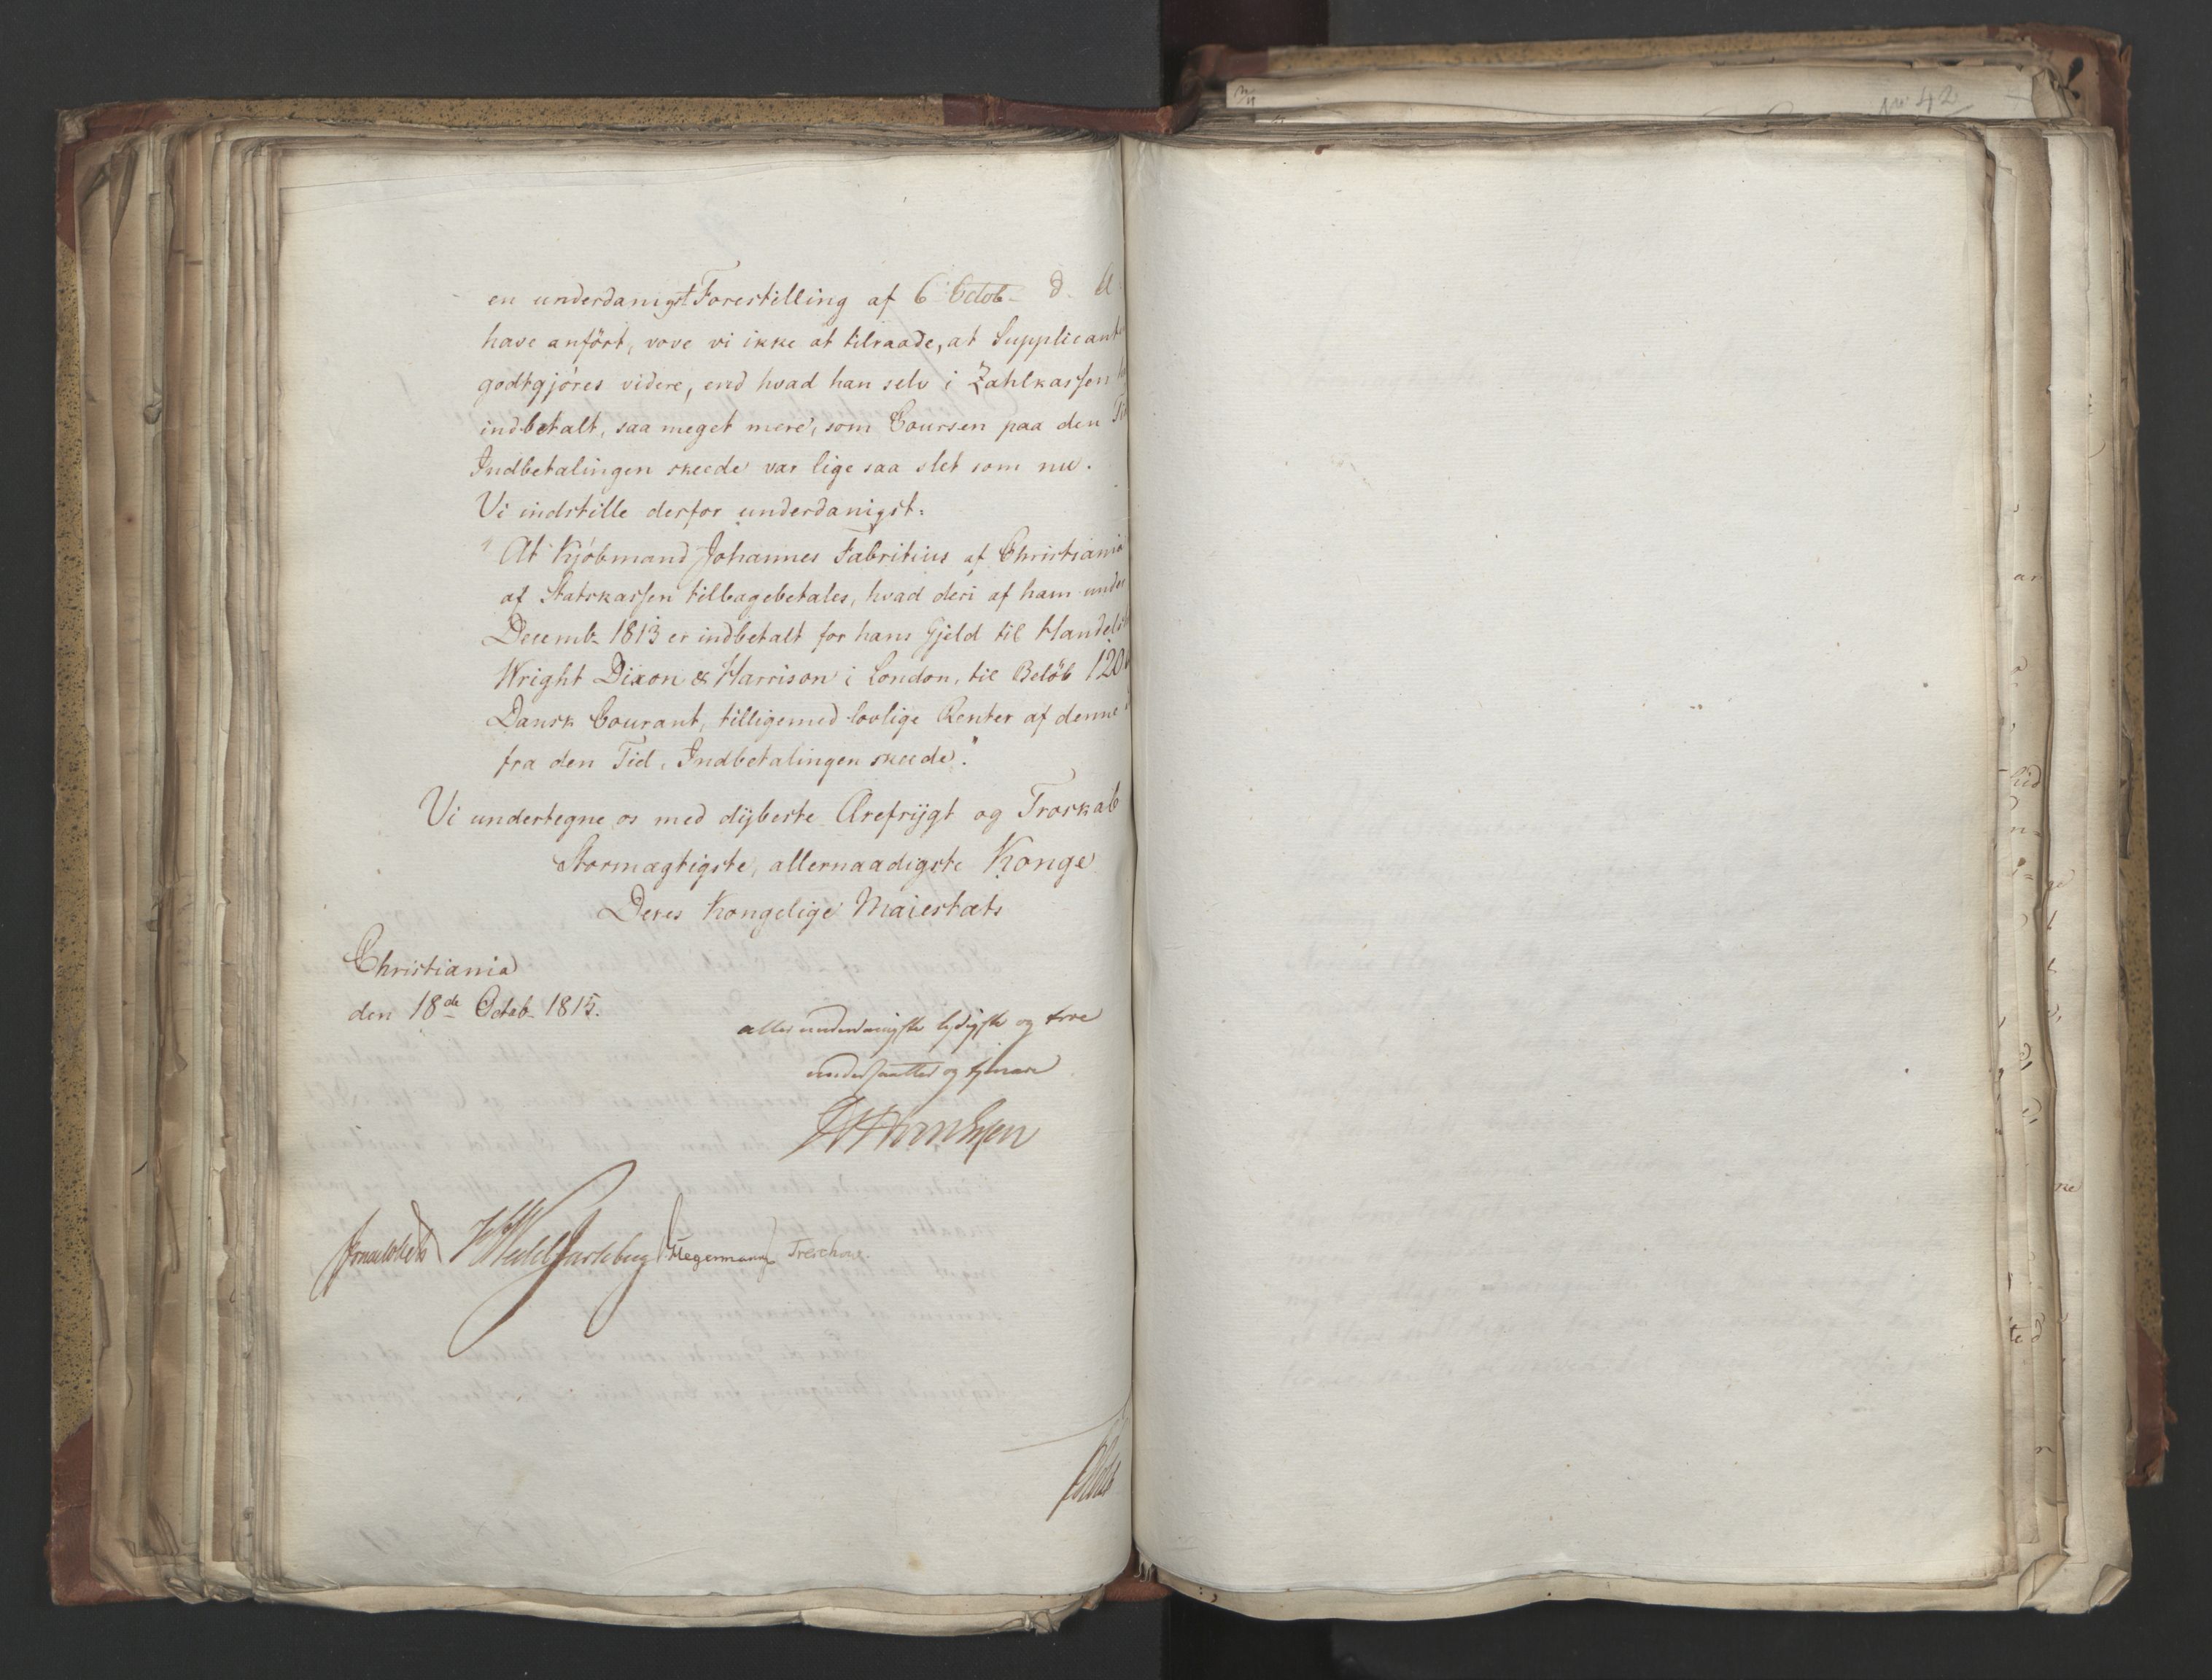 en underdanigst Forestilling af 6 Octob. d. A.
have anfört, vove vi ikke at tilraade, at Supplicant
godtgjöres videre, end hvad han selv i Zahlkassen
indbetalt, saa meget mere, som Coursen paa den
Indbetalingen skeede var lige saa slet som nu.
Vi indstille derfor underdanigst:
"At Kjöbmand Johannes Fabritius af Christiania
af Statskassen tilbagebetales, hvad deri af ham under
Decemb. 1813 er indbetalt for hans Gjeld til Handels
Wright Dixon & Harrison i London, til Belöb 120
Dansk Courant, tilligemed lovlige Renter af denne
fra den Tid, Indbetalingen skeede."
Vi undertegne os med dijbeste Ærefrijgt og Troskab
Stormægtigste, allernaadigste Konge
Deres Kongelige Maiestæts
Christiania
den 18de Octob. 1815.
allerunderdanigste lydigste og troe
undersaatter og tjenere
Wedel Jarlsberg Hegermann Treschow.
No 42